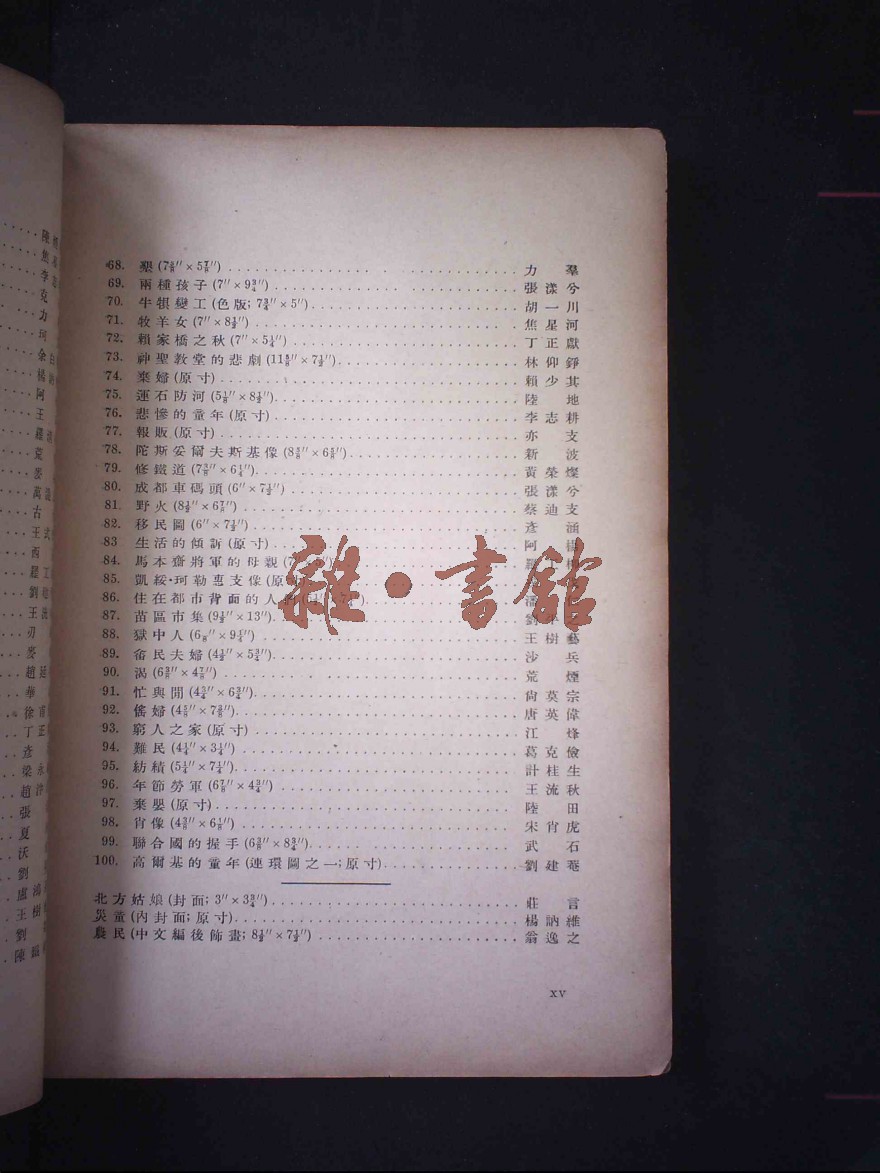 68. 墾 (7⅜″×5⅞″) 力羣
69. 兩種孩子 (7″×9¾″) 張漾兮
70. 牛犋變工 (色版; 7¾″×5″) 胡一川
71. 牧羊女 (7″×8½″) 焦星河
72. 賴家橋之秋 (7″×5¼″) 丁正獻
73. 神聖教堂的悲劇 (11⅝″×7½″) 林仰錚
74. 棄婦 (原寸) 賴少其
75. 運石防河 (5½″×8½″) 陸地
76. 悲慘的童年 (原寸) 李志耕
77. 報販 (原寸) 亦支
78. 陀斯妥爾夫斯基像 (8⅝″×6⅝″) 新波
79. 修鐵道 (7⅜″×6¼″) 黃榮燦
80. 成都車碼頭 (6″×7½″) 張漾兮
81. 野火 (8½″×6⅞″) 蔡迪支
82. 移民圖 (6″×7½″) 彥涵
83 生活的傾訴 (原寸) 阿
84. 馬本齋將軍的母親
85. 凱綏·珂勒惠支像 (原
86. 住在都市背面的人們 潘
87. 苗區市集 (9½″×13″) 劉
88. 獄中人 王樹藝
89. 畲民夫婦 (4½″×5¾″) 沙兵
90. 渴 (6⅜″×4⅞″) 荒煙
91. 忙與閒 (4¾″×6¾″) 尙莫宗
92. 傜婦 (4⅝″×7⅜″) 唐英偉
93. 窮人之家 (原寸) 江烽
94. 難民 (4¼″×3¼″) 葛克儉
95. 紡積 (5¼″×7¼″) 計桂生
96. 年節勞軍 (6⅞″×4¾″) 王流秋
97. 棄嬰 (原寸) 陸田
98. 肖像 (4⅜″×6⅛″) 宋肖虎
99. 聯合國的握手 (6⅜″×8¾″) 武石
100. 高爾基的童年 (連環圖之一; 原寸) 劉建菴
北方姑娘 (封面; 3″×3¾″) 莊言
災童 (內封面; 原寸) 楊訥維
農民 (中文編後飾畫; 8½″×7½″) 翁逸之
xv
雜·書館